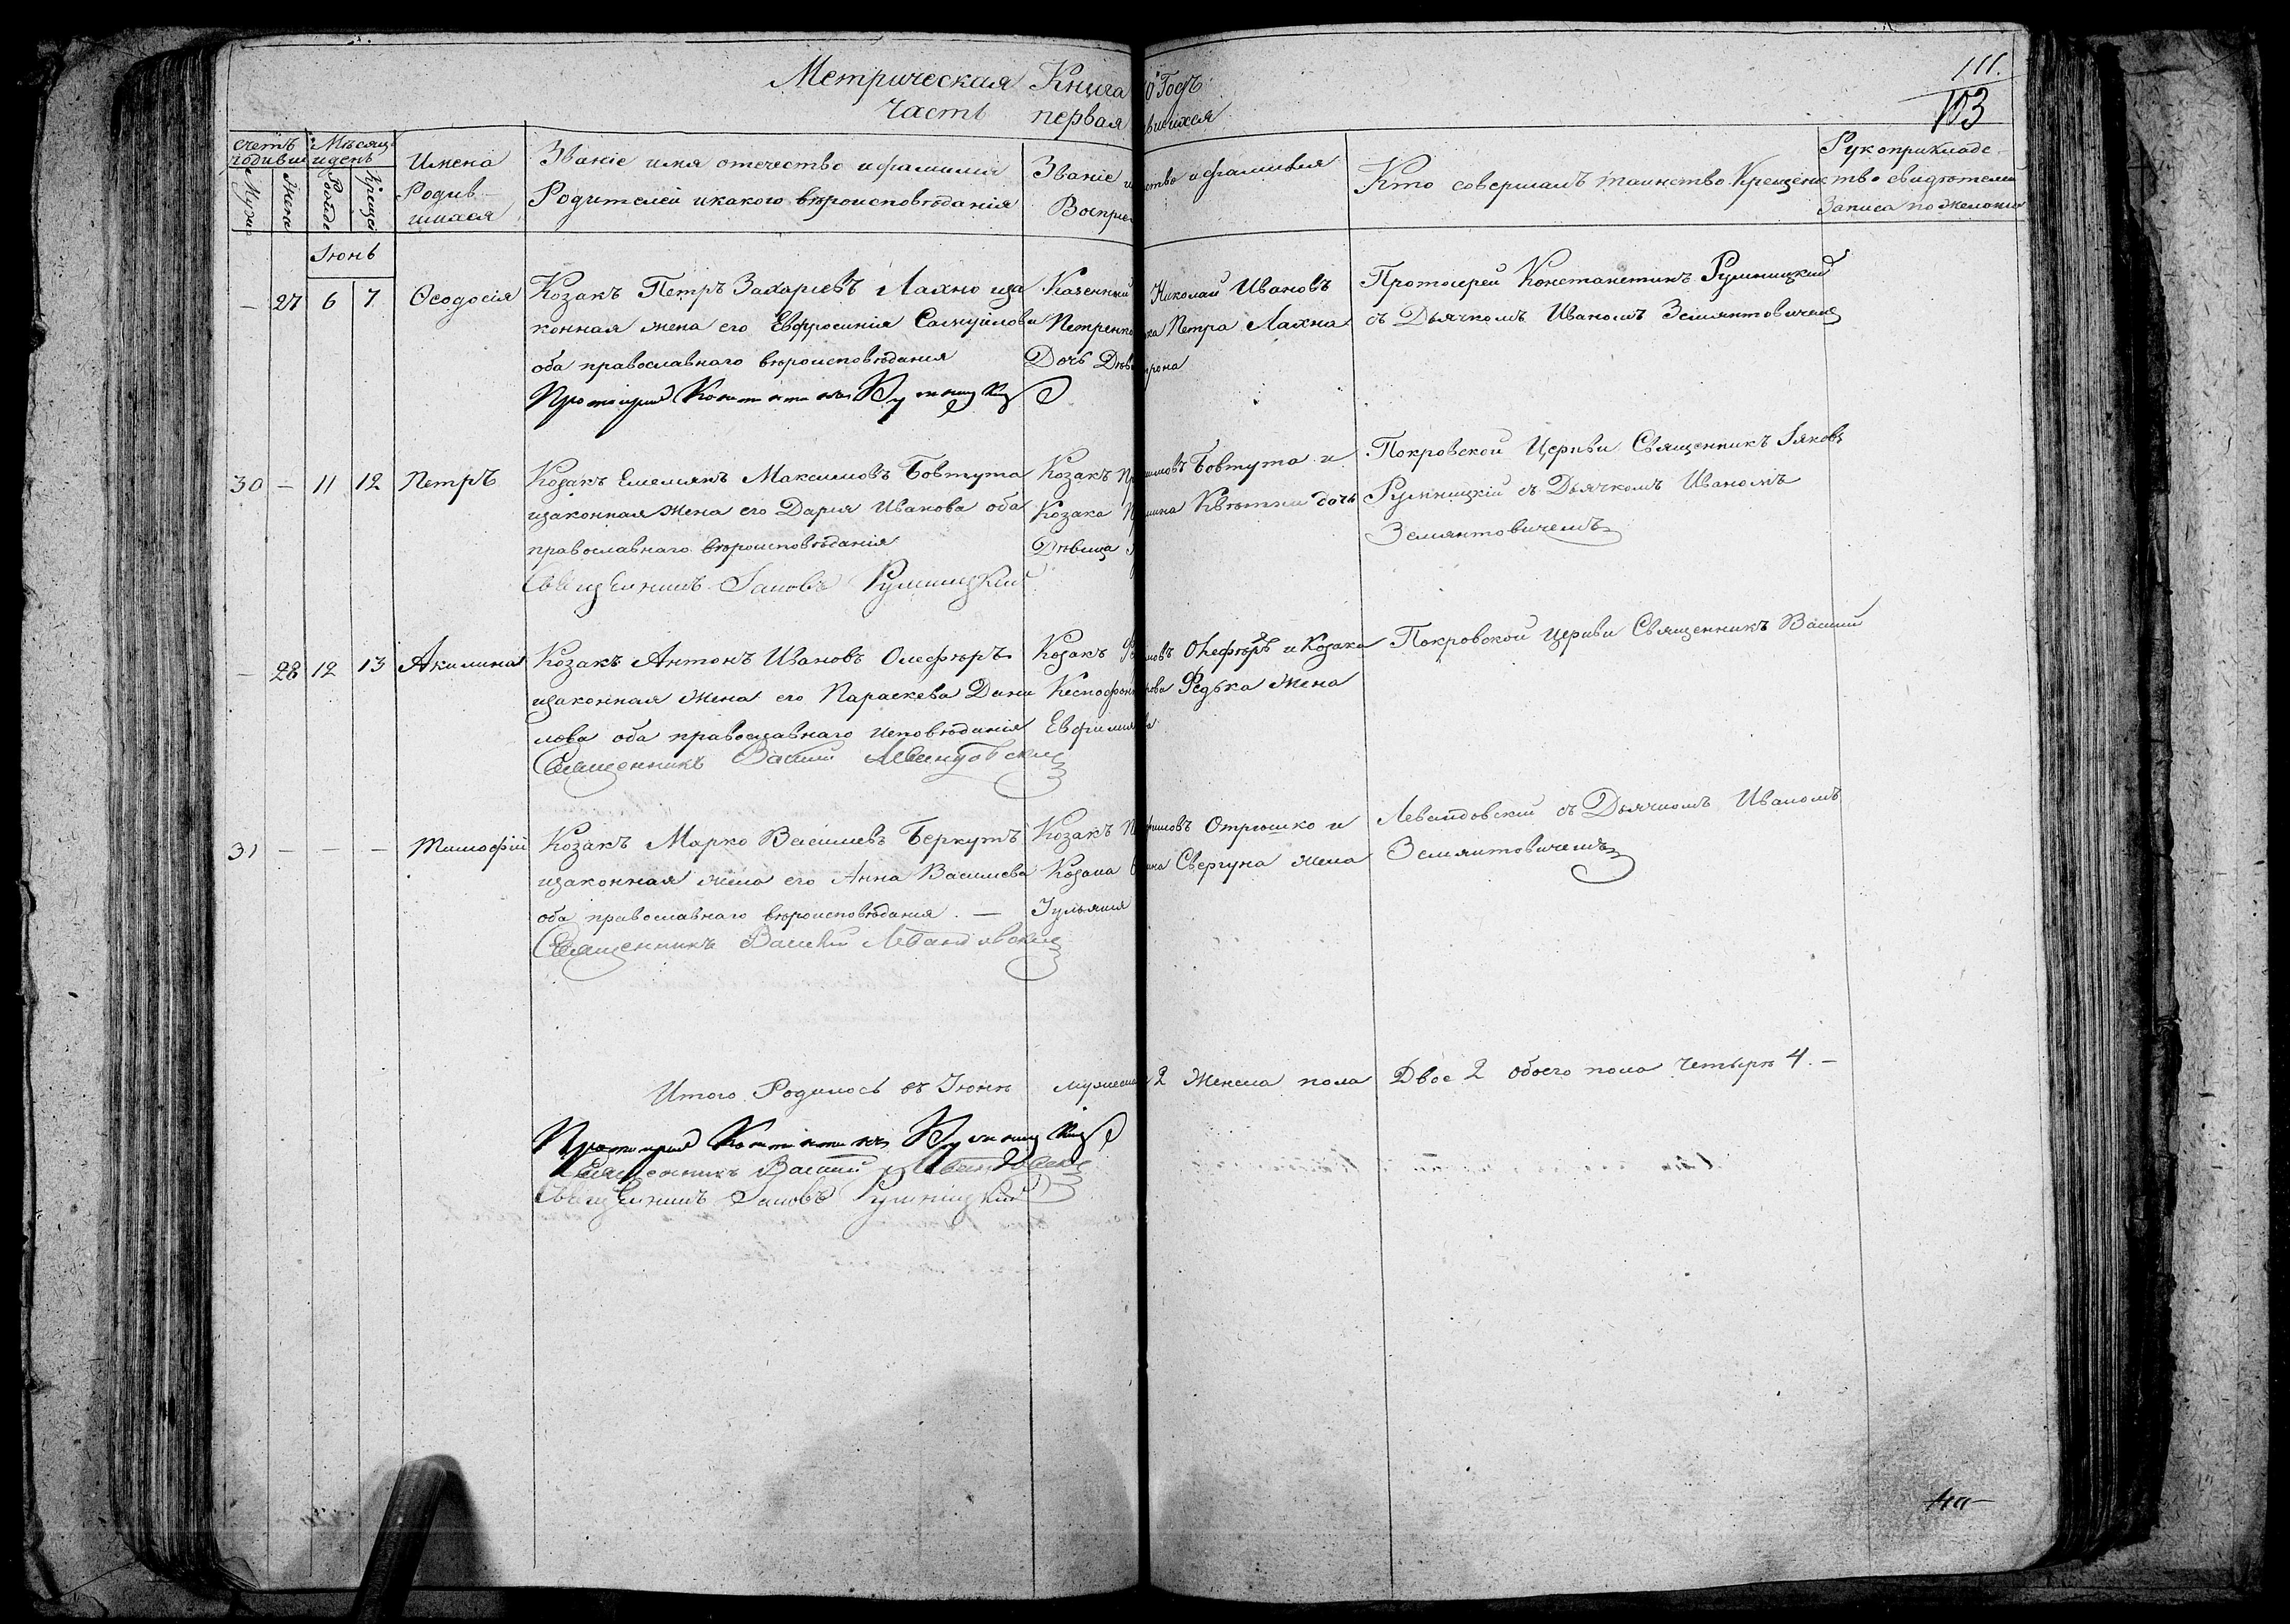 111.
103
Метрическая Книга
Годъ
часть первая
вшихся
счетъ родивши
Мѣсяц и день
Имена Родив шихся
Званіе имя отечество и фамилия
Родителей и какого вѣроисповѣдания
Званіе
Воспріе
ество и фамилия
Кто совершалъ таинство Крещение
Рукоприкладс
тво свидѣтелей
Записа по желанию
Мужс
Женс
Рожде
Креще
Іюнь
— 27 6 7 Ѳеодосія
Козакъ Петръ Захаріевъ Лахно иза
конная жена его Евфросинія Самуйлова
оба православнаго вѣроисповѣдания
Протоиерей Константинъ Румницкий
Казенный
Петренко
Дочь Дѣв
Николай Ивановъ
ка Петра Лахна
Протоиерей Константинъ Румницкий
съ Дьячкомъ Иваномъ Земянтовичемъ
30 — 11 12 Петръ
Козакъ Емелиянъ Максимовъ Бовтута
изаконная жена его Дария Иванова оба
православнаго вѣроисповѣданія
Священникъ Іаковъ Румницкий
Козакъ
Козака
Дѣвица
имовъ Бовтута и
Квѣтки дочь
Покровской Церкви Священникъ Іяковъ
Румницкій съ Дьячкомъ Иваномъ
Земянтовичемъ
— 28 12 13 Акилина
Козакъ Антонъ Ивановъ Олефѣръ
изаконная жена его Параскева Дани
лова оба православнаго исповѣданія
Священникъ Василий Левандовский
Козакъ
Ксенофон
Евфимия
мовъ Олефѣръ и Козака
рова Редька жена
Покровской церкви Священникъ Василий
31 — — — Тимофій
Козакъ Марко Василиевъ Беркутъ
изаконная жена его Анна Василиева
оба православнаго вѣроисповѣдания. —
Священникъ Василий Левандовский
Козакъ
Козака
Іульяния
фимовъ Отрошко и
Свергуна жена
Левандовский съ Дьячкомъ Иваномъ
Земянтовичемъ
Итого Родилось въ Іюнѣ
мужеска 2 Женска пола Двое 2 обоего пола Четырѣ 4. —
Протоиерей Константинъ Румницкий
Священникъ Василий Левандовский
Священникъ Іаковъ Румницкий